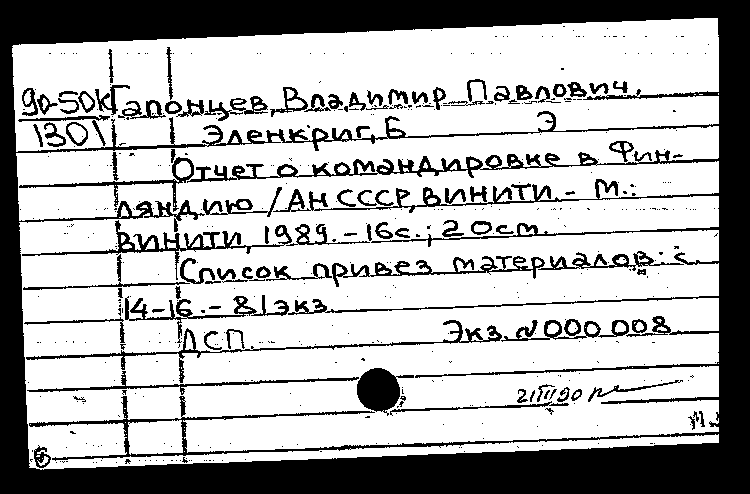 90-50К Гапонцев, Владимир Павлович.
1301 Эленкриг, Б Э
Отчет о командировке в Фин-
ляндию /АН СССР, ВИНИТИ. - М.:
ВИНИТИ, 1989. - 16с.; 20 ст.
Список привез материалов: с.
14-16. - 81 экз.
ДСП. Экз. N 000 008
21/III 90